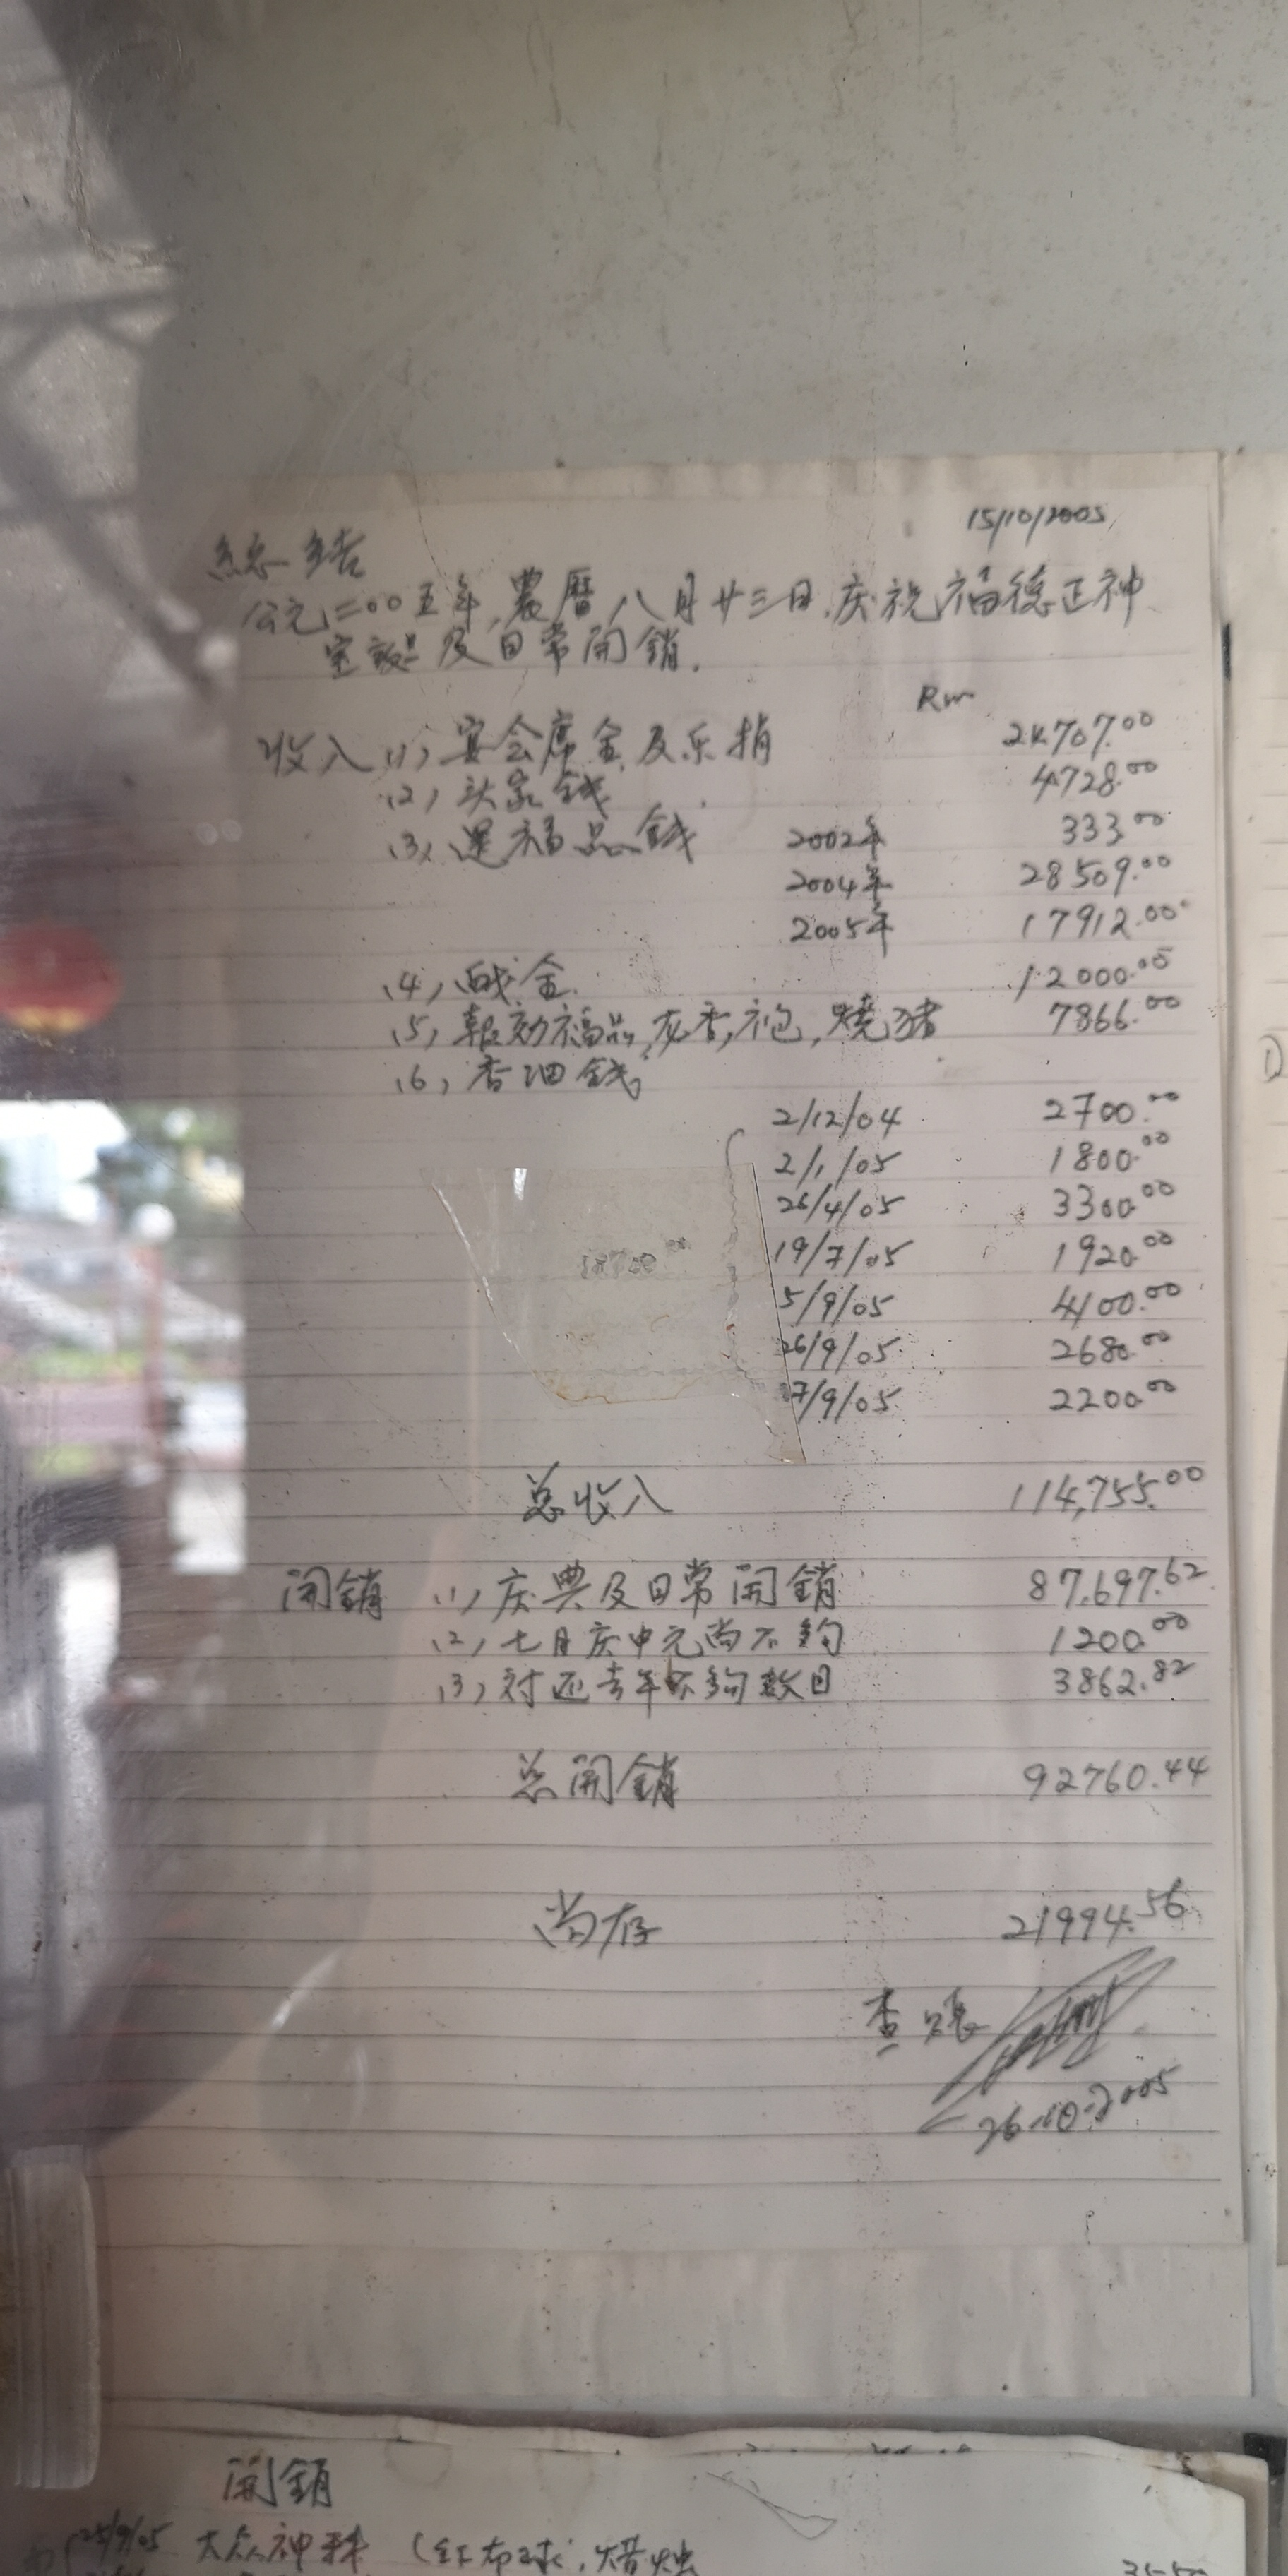 15/10/2005
総結
公元二00五年,農曆八月廿三日.庆祝福德正神
宝誕及日常開銷.
Rm
收入 (1) 宴会席金及乐捐 24707.00
(2) 头家錢 4728.00
(3) 還福品錢 2002年 333.00
2004年 28509.00
2005年 17912.00
(4) 戯金 12000.00
(5) 報効福品,灰香,包,燒猪 7866.00
(6) 香油錢
2/12/04 2700.00
2/1/05 1800.00
26/4/05 3300.00
18700.00 19/7/05 1920.00
5/9/05 4100.00
26/9/05 2680.00
7/9/05 2200.00
总收入 114,755.00
開銷 (1) 庆典及日常開銷 87,697.62
(2) 七月庆中元尚不夠 1200.00
(3) 对还去年不夠数目 3862.82
总開銷 92760.44
尚存 21994.56
查賬
26.10.2005
開銷
25/9/05 大众神料 (红布球,